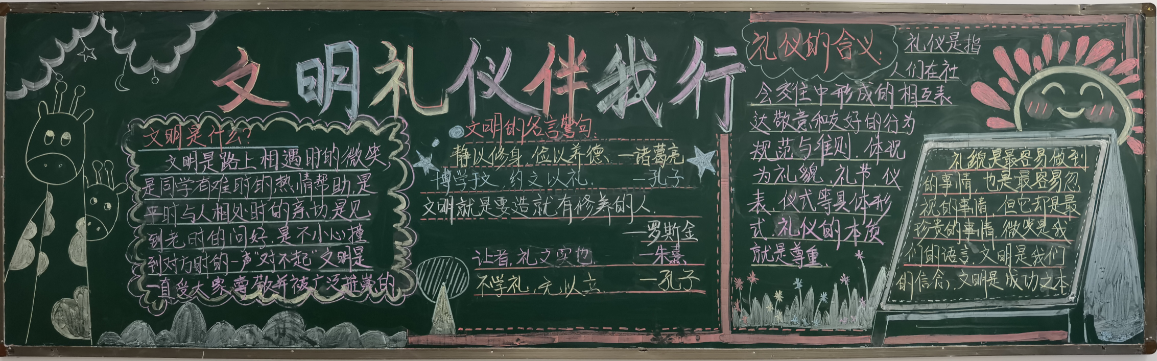 文明礼仪伴我行
文明是什么?
文明是路上相遇用的微笑
是同学有难时的热情帮助,是
平时与人相处时的亲切,是见
到老师时的问好,是不小心撞
到对方时的一声"对不起"文明是
一直受大家尊敬并被广泛推崇的
文明的名言警句
静以修身,俭以养德、—诸葛亮
博学于文,约之以礼、—孔子
文明就是要造就有修养的人.
—罗斯金
让者,礼之实也 —朱熹
不学礼,无以立 —孔子
礼仪的含义
礼仪是指
人们在社
会交往中形成的相互表
达敬意和友好的行为
规范与准则,体现
为礼貌、礼节、仪
表、仪式等具体形
式,礼仪的本质
就是尊重
礼貌是最容易做到
的事情,也是最容易忽
视的事情,但它却是最
珍贵的事情,微笑是我
们的语言,文明是我们
的信念,文明是成功之本